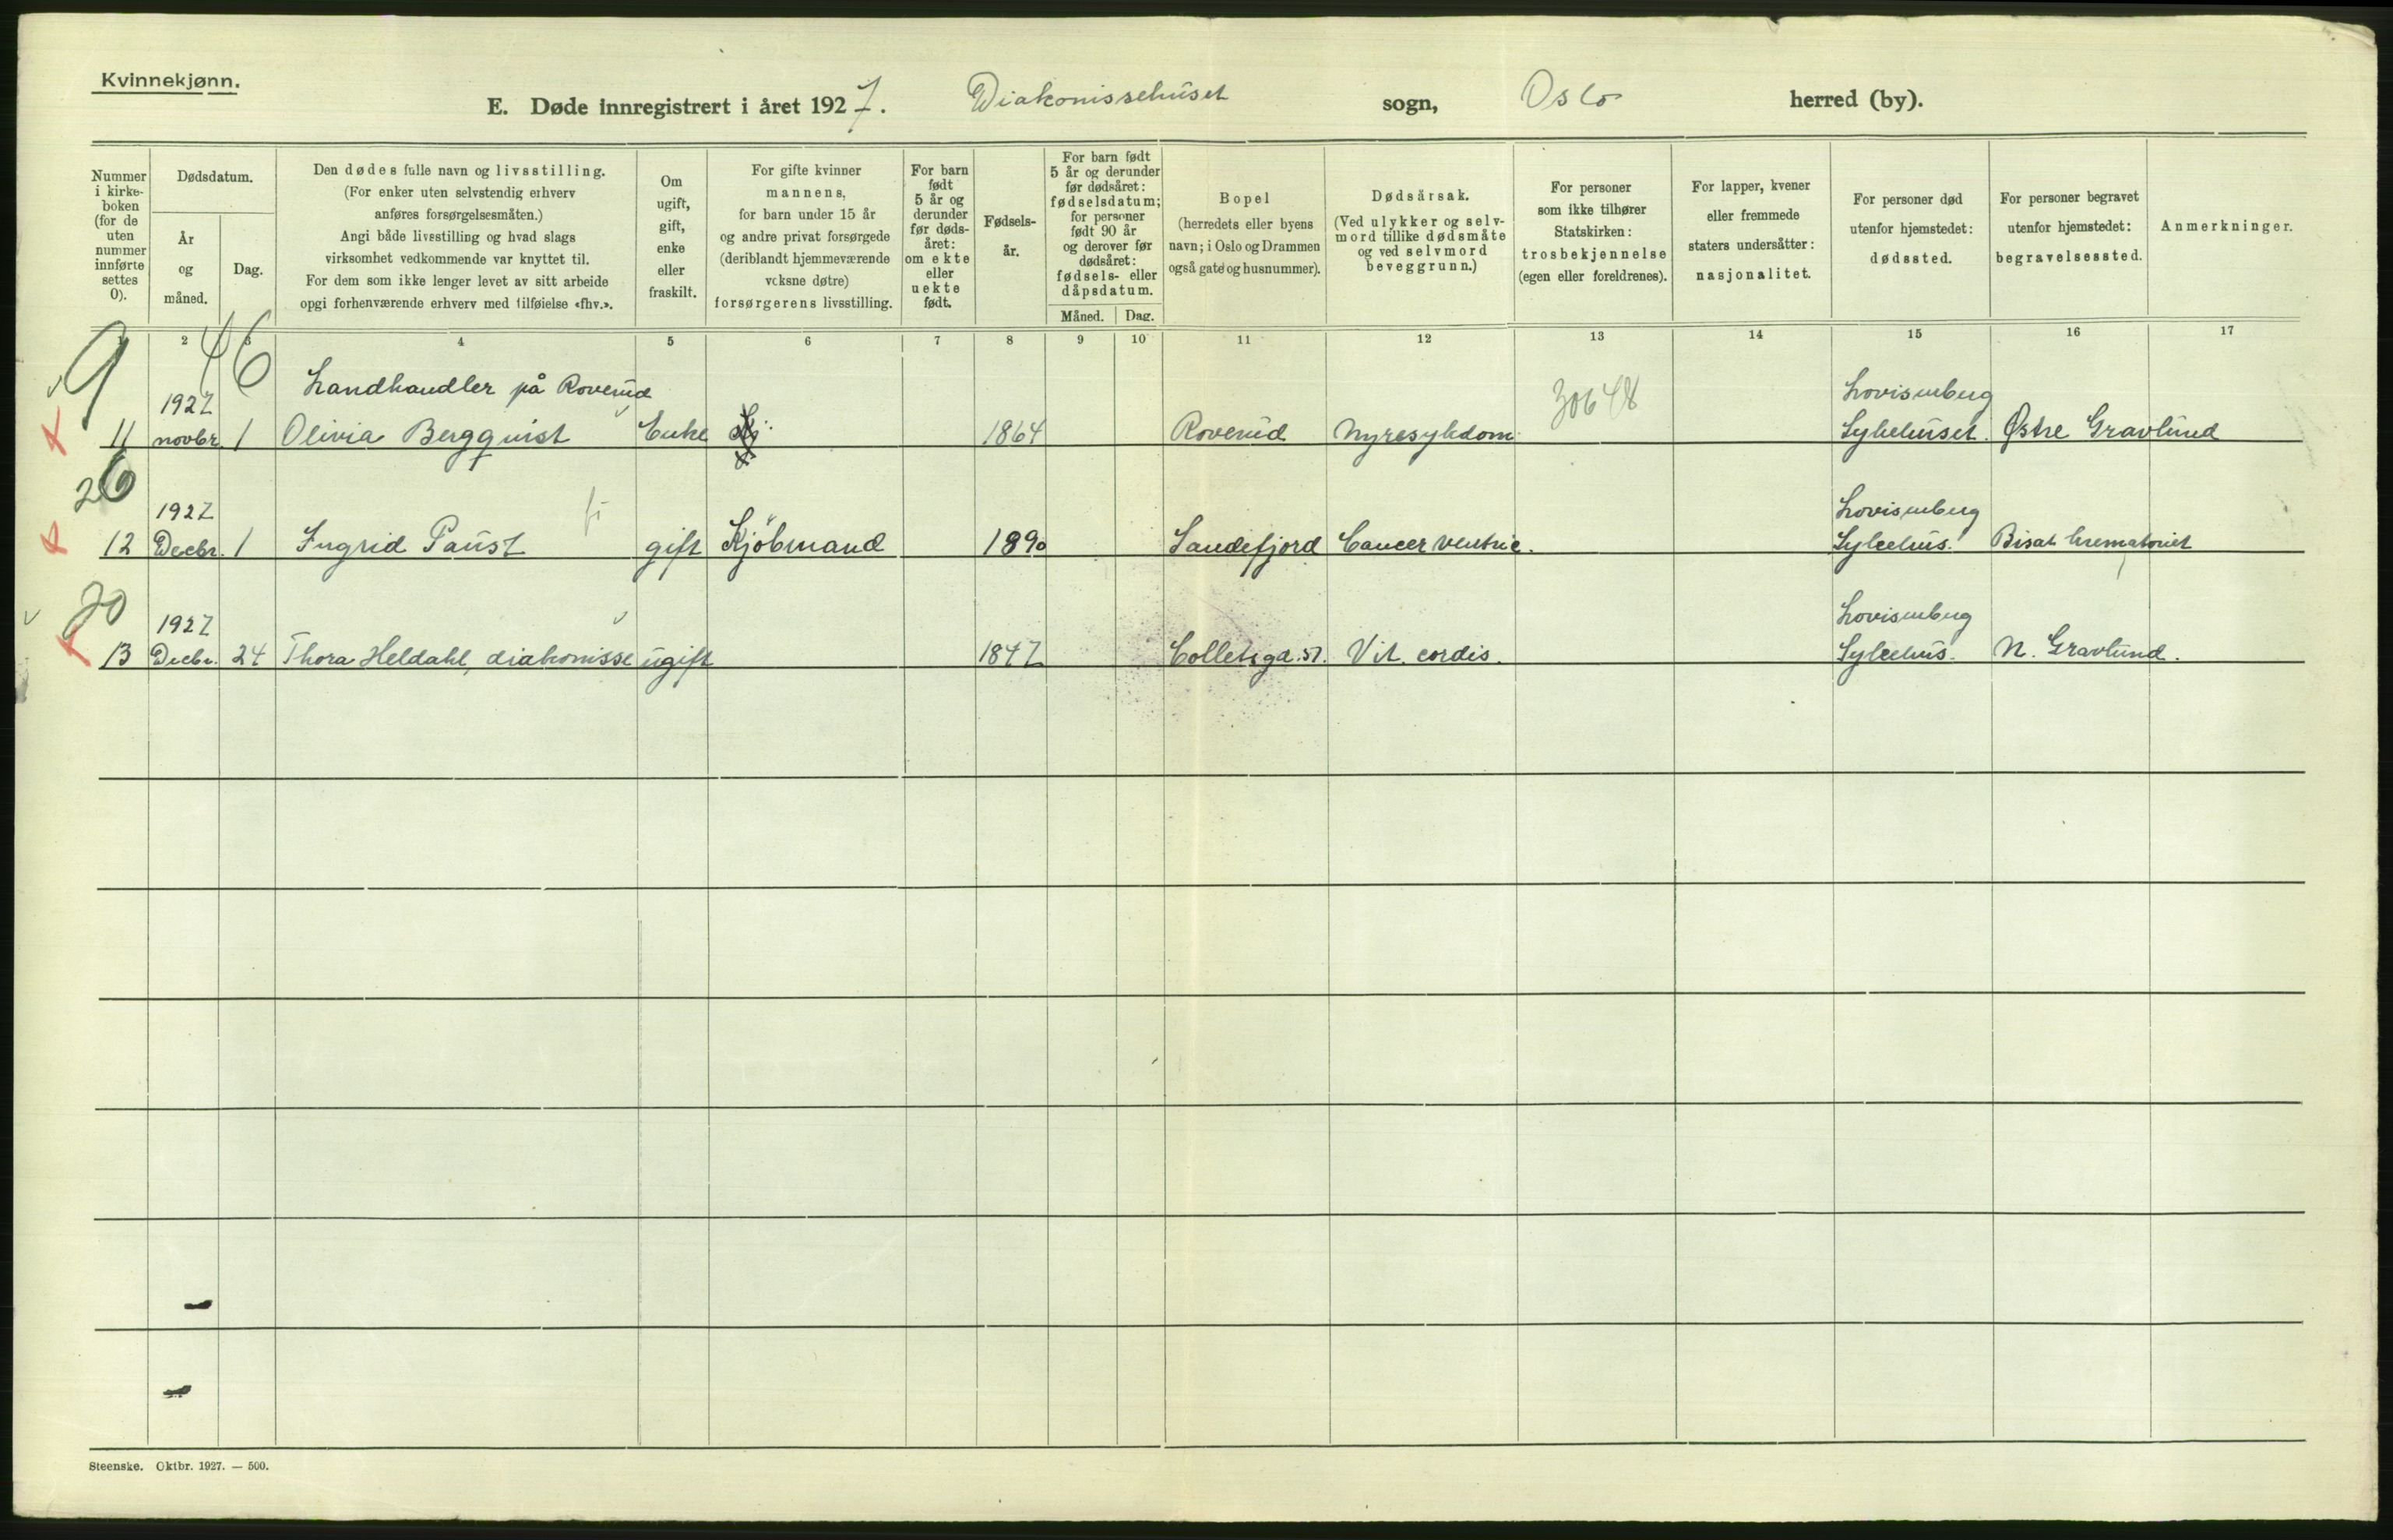 Kvinnekjønn.
E. Døde innregistrert i året 1927. Diakonissehuset sogn, Oslo herred (by).
Nummer i kirke-boken (for de uten nummer innførte settes 0).
Dødsdatum.
År og måned.
Dag.
Den dødes fulle navn og livsstilling.
(For enker uten selvstendig erhverv
anføres forsørgelsesmåten.)
Angi både livsstilling og hvad slags
virksomhet vedkommende var knyttet til.
For dem som ikke lenger levet av sitt arbeide
opgi forhenværende erhverv med tilføielse «fhv.».
Om
ugift,
gift,
enke
eller
fraskilt.
For gifte kvinner
mannens,
for barn under 15 år
og andre privat forsørgede
(deriblandt hjemmeværende
voksne døtre)
forsørgerens livsstilling.
For barn
født
5 år og
derunder
før døds-
året:
om ekte
eller
uekte
født.
Fødsels-
år.
For barn født
5 år og derunder
før dødsåret:
fødselsdatum;
for personer
født 90 år
og derover før
dødsåret:
fødsels- eller
dåpsdatum.
Måned. Dag.
Bopel
(herredets eller byens
navn; i Oslo og Drammen
også gate og husnummer).
Dødsårsak.
(Ved ulykker og selv-
mord tillike dødsmåte
og ved selvmord
beveggrunn.)
For personer
som ikke tilhører
Statskirken:
trosbekjennelse
(egen eller foreldrenes).
For lapper, kvener
eller fremmede
staters undersåtter:
nasjonalitet.
For personer død
utenfor hjemstedet:
dødssted.
For personer begravet
utenfor hjemstedet:
begravelsessted.
Anmerkninger.
1 2 3 4 5 6 7 8 9 10 11 12 13 14 15 16 17
9 46
Landhandler på Roverud 30648 Lovisenberg
1927
11 novbr. 1 Olivia Bergquist Enke 1864 Roverud Nyresykdom Sykehuset. Østre Gravlund
26
1927 Lovisenberg
12 Decbr. 1 Ingrid Paust gift Kjöbmand 1890 Sandefjord Cancer ventric. Sykehus. Bisat krematoriet
20
1927 Lovisenberg
13 Decbr. 24 Thora Heldahl, diakonisse ugift 1847 Colletsgd. 57. Vit. cordis. Sykehus. N. Gravlund.
Steenske. Oktbr. 1927. — 500.